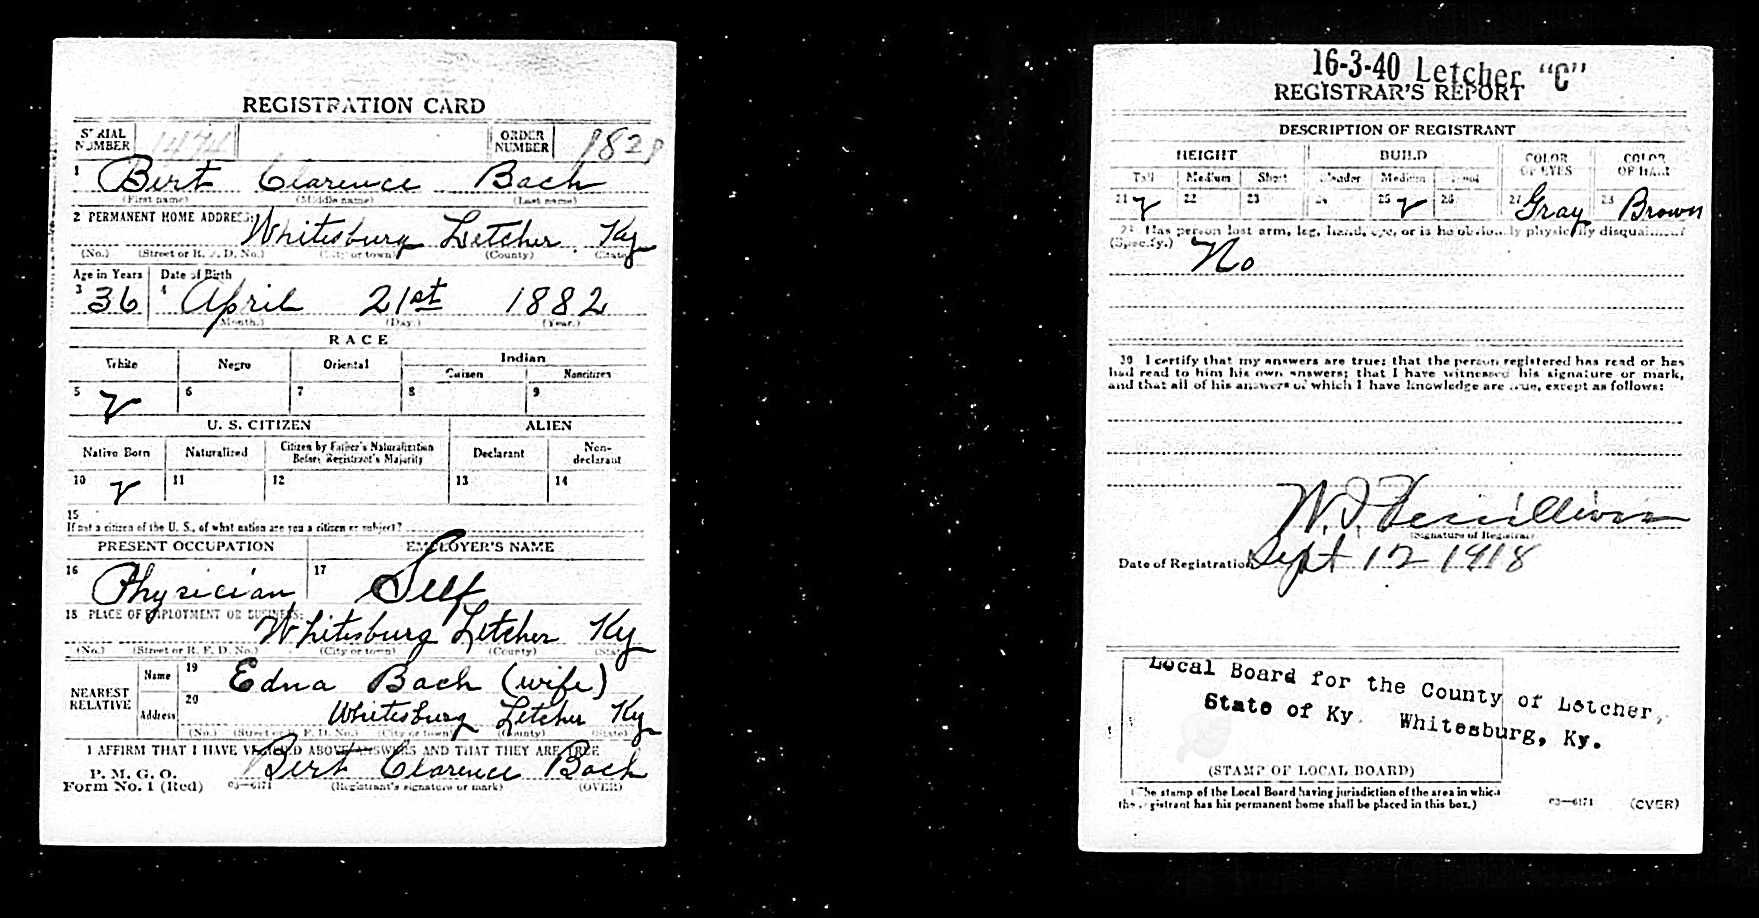 REGISTRATION CARD
SERIAL NUMBER 1474 ORDER NUMBER
1 Bert Clarence Bach
(First name) (Middle name) (Last name)
2 PERMANENT HOME ADDRESS:
Whitesburg Letcher Ky
(No.) (Street or R. F. D. No.) (City or town) (County) (State)
Age in Years Date of Birth
3 36 4 April 21st 1882
(Month.) (Day.) (Year.)
RACE
White Negro Oriental Indian
Citizen Noncitizen
5 6 7 8 9
U. S. CITIZEN ALIEN
Native Born Naturalized Citizen by Father's Naturalization Before Registrant's Majority Declarant Non-declarant
10 11 12 13 14
15
If not a citizen of the U. S., of what nation are you a citizen or subject?
PRESENT OCCUPATION EMPLOYER'S NAME
16 Physician 17 Self
18 PLACE OF EMPLOYMENT OR BUSINESS:
Whitesburg Letcher Ky
(No.) (Street or R. F. D. No.) (City or town) (County) (State)
NEAREST RELATIVE Name 19 Edna Bach (wife)
Address 20 Whitesburg Letcher Ky
(No.) (Street or R. F. D. No.) (City or town) (County) (State)
I AFFIRM THAT I HAVE VERIFIED ABOVE ANSWERS AND THAT THEY ARE TRUE
P. M. G. O.
Form No. 1 (Red) 03—6171 Bert Clarence Bach
(Registrant's signature or mark) (OVER)
16-3-40 Letcher "C"
REGISTRAR'S REPORT
DESCRIPTION OF REGISTRANT
HEIGHT BUILD COLOR OF EYES COLOR OF HAIR
Tall Medium Short Slender Medium Stout
21 22 23 24 25 26 27 Gray 28 Brown
29 Has person lost arm, leg, hand, eye, or is he obviously physically disqualified?
(Specify.) No
30 I certify that my answers are true; that the person registered has read or has
had read to him his own answers; that I have witnessed his signature or mark,
and that all of his answers of which I have knowledge are true, except as follows:
(Signature of Registrar)
Date of Registration Sept 12 1918
Local Board for the County of Letcher,
State of Ky. Whitesburg, Ky.
(STAMP OF LOCAL BOARD)
(The stamp of the Local Board having jurisdiction of the area in which
the registrant has his permanent home shall be placed in this box.)
03—6171 (OVER)